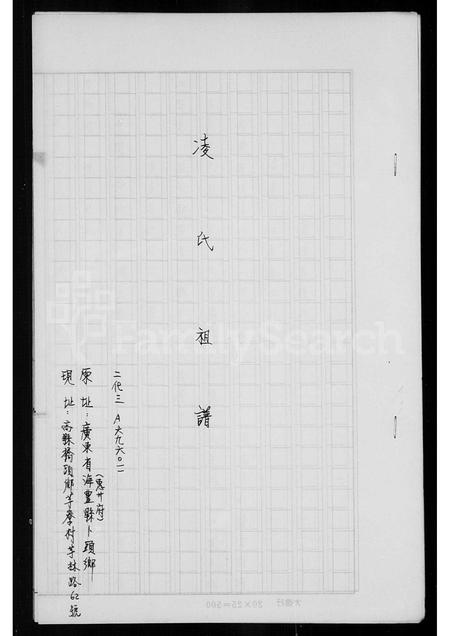 凌氏祖譜
二代三 A六九六0一一
原址：廣東省海豐縣卜頭鄉
(惠州府)
現址：高縣橋頭鄉芋寮村芋林路62號
FamilySearch
20×25=500